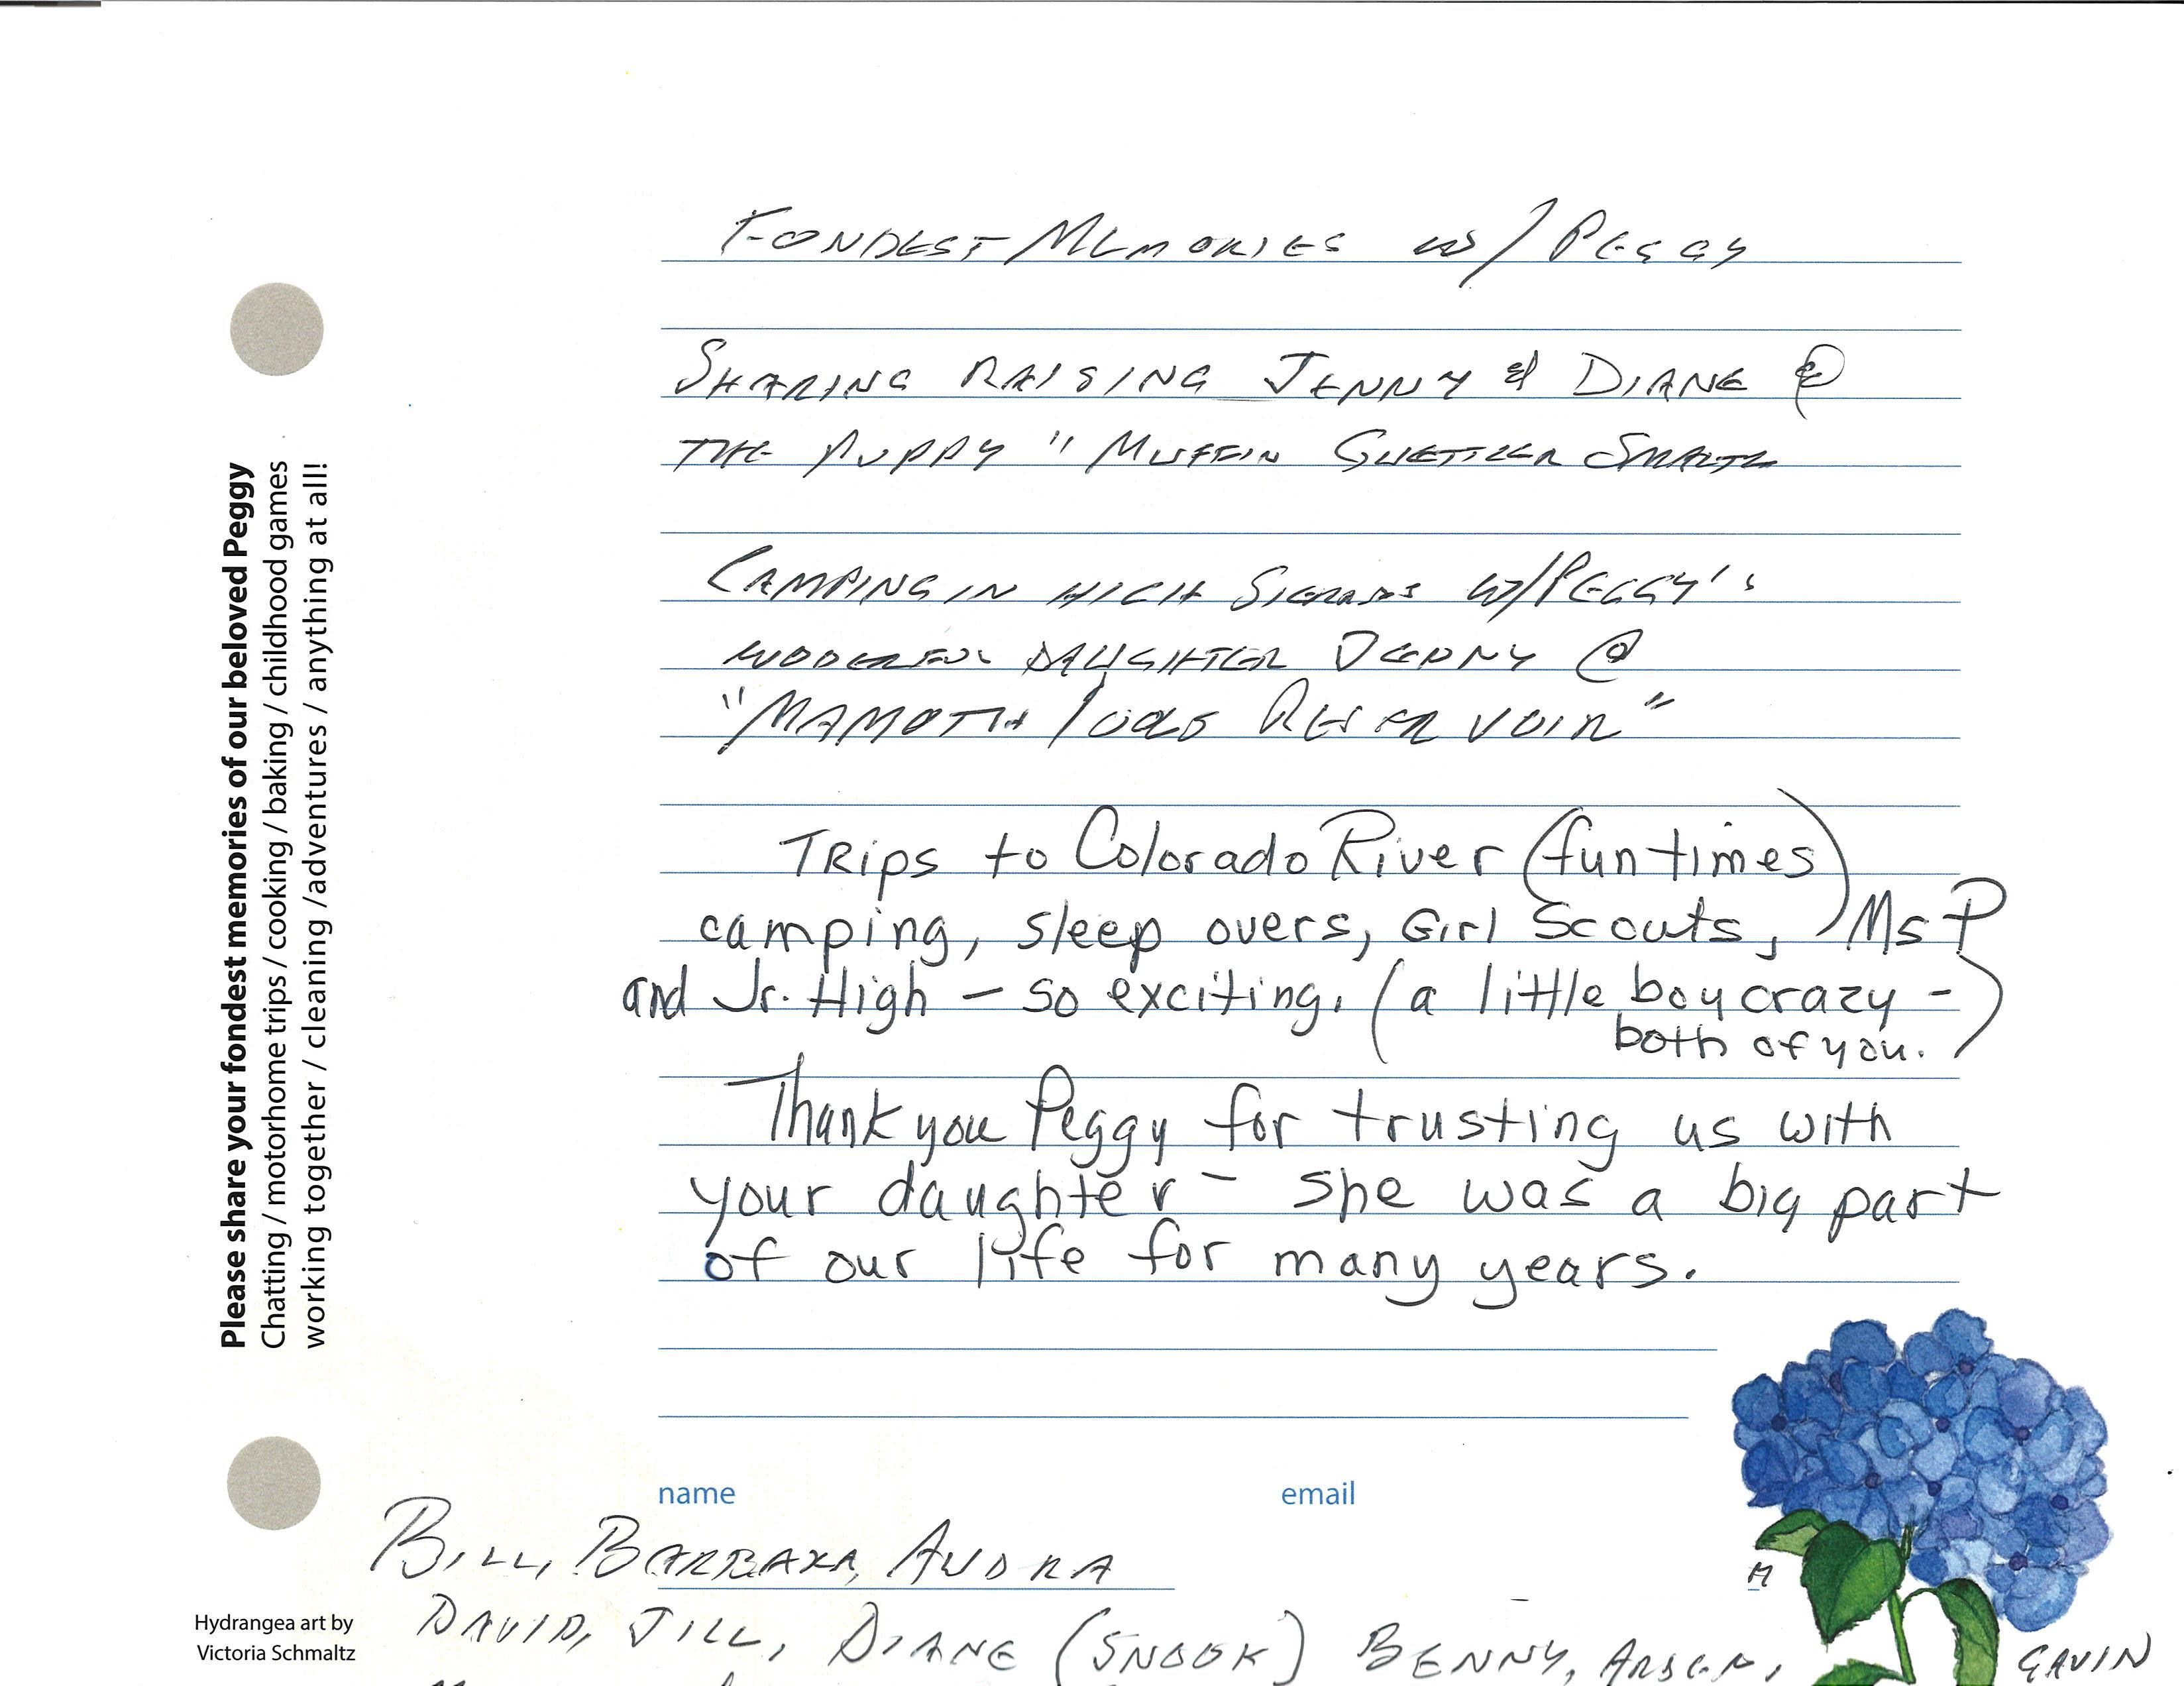 FONDEST MEMORIES w/ PEGGY
SHARING RAISING JENNY & DIANE @
THE PUPPY "MUFFIN
CAMPING IN HIGH w/PEGGY's
DAUGHTER @
"MAMOTH POOLS RESERVOIR"
TRips to Colorado River (fun times)
camping, sleep overs, Girl Scouts, Ms P
and Jr. High – so exciting. (a little boy crazy -
both of you.)
Thank you Peggy for trusting us with
your daughter – she was a big part
of our life for many years.
name email
BILL, BARBARA, AUDRA
DAVID, JILL, DIANE (SNOOK) BENNY, GAVIN
Please share your fondest memories of our beloved Peggy
Chatting / motorhome trips / cooking / baking / childhood games
working together / cleaning /adventures / anything at all!
Hydrangea art by
Victoria Schmaltz